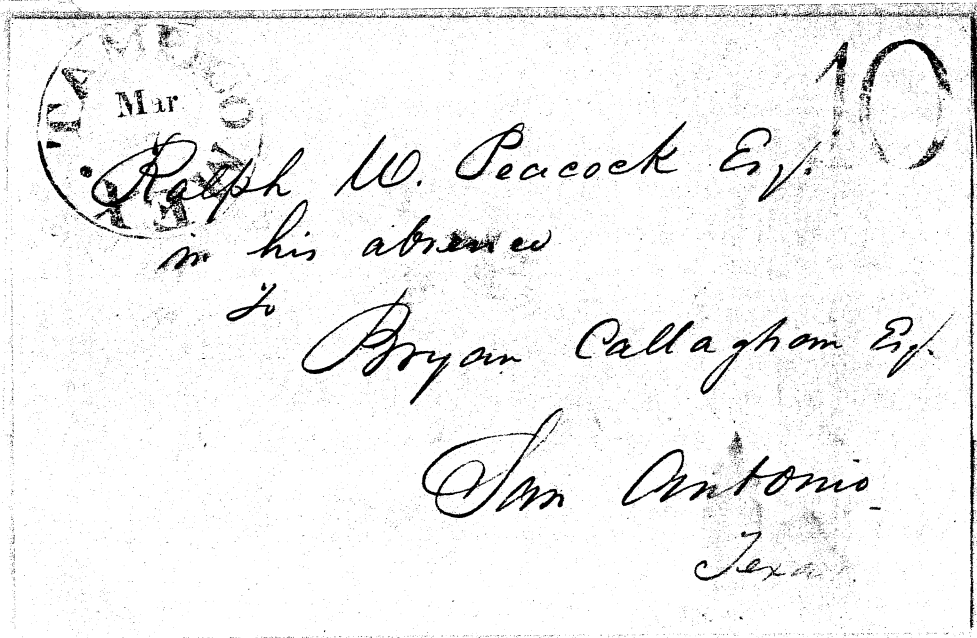 TAMEQUO TEX.
Mar
10
Ralph W. Peacock Esq.
in his absence
to
Bryan Callaghan Esq.
San Antonio
Texas